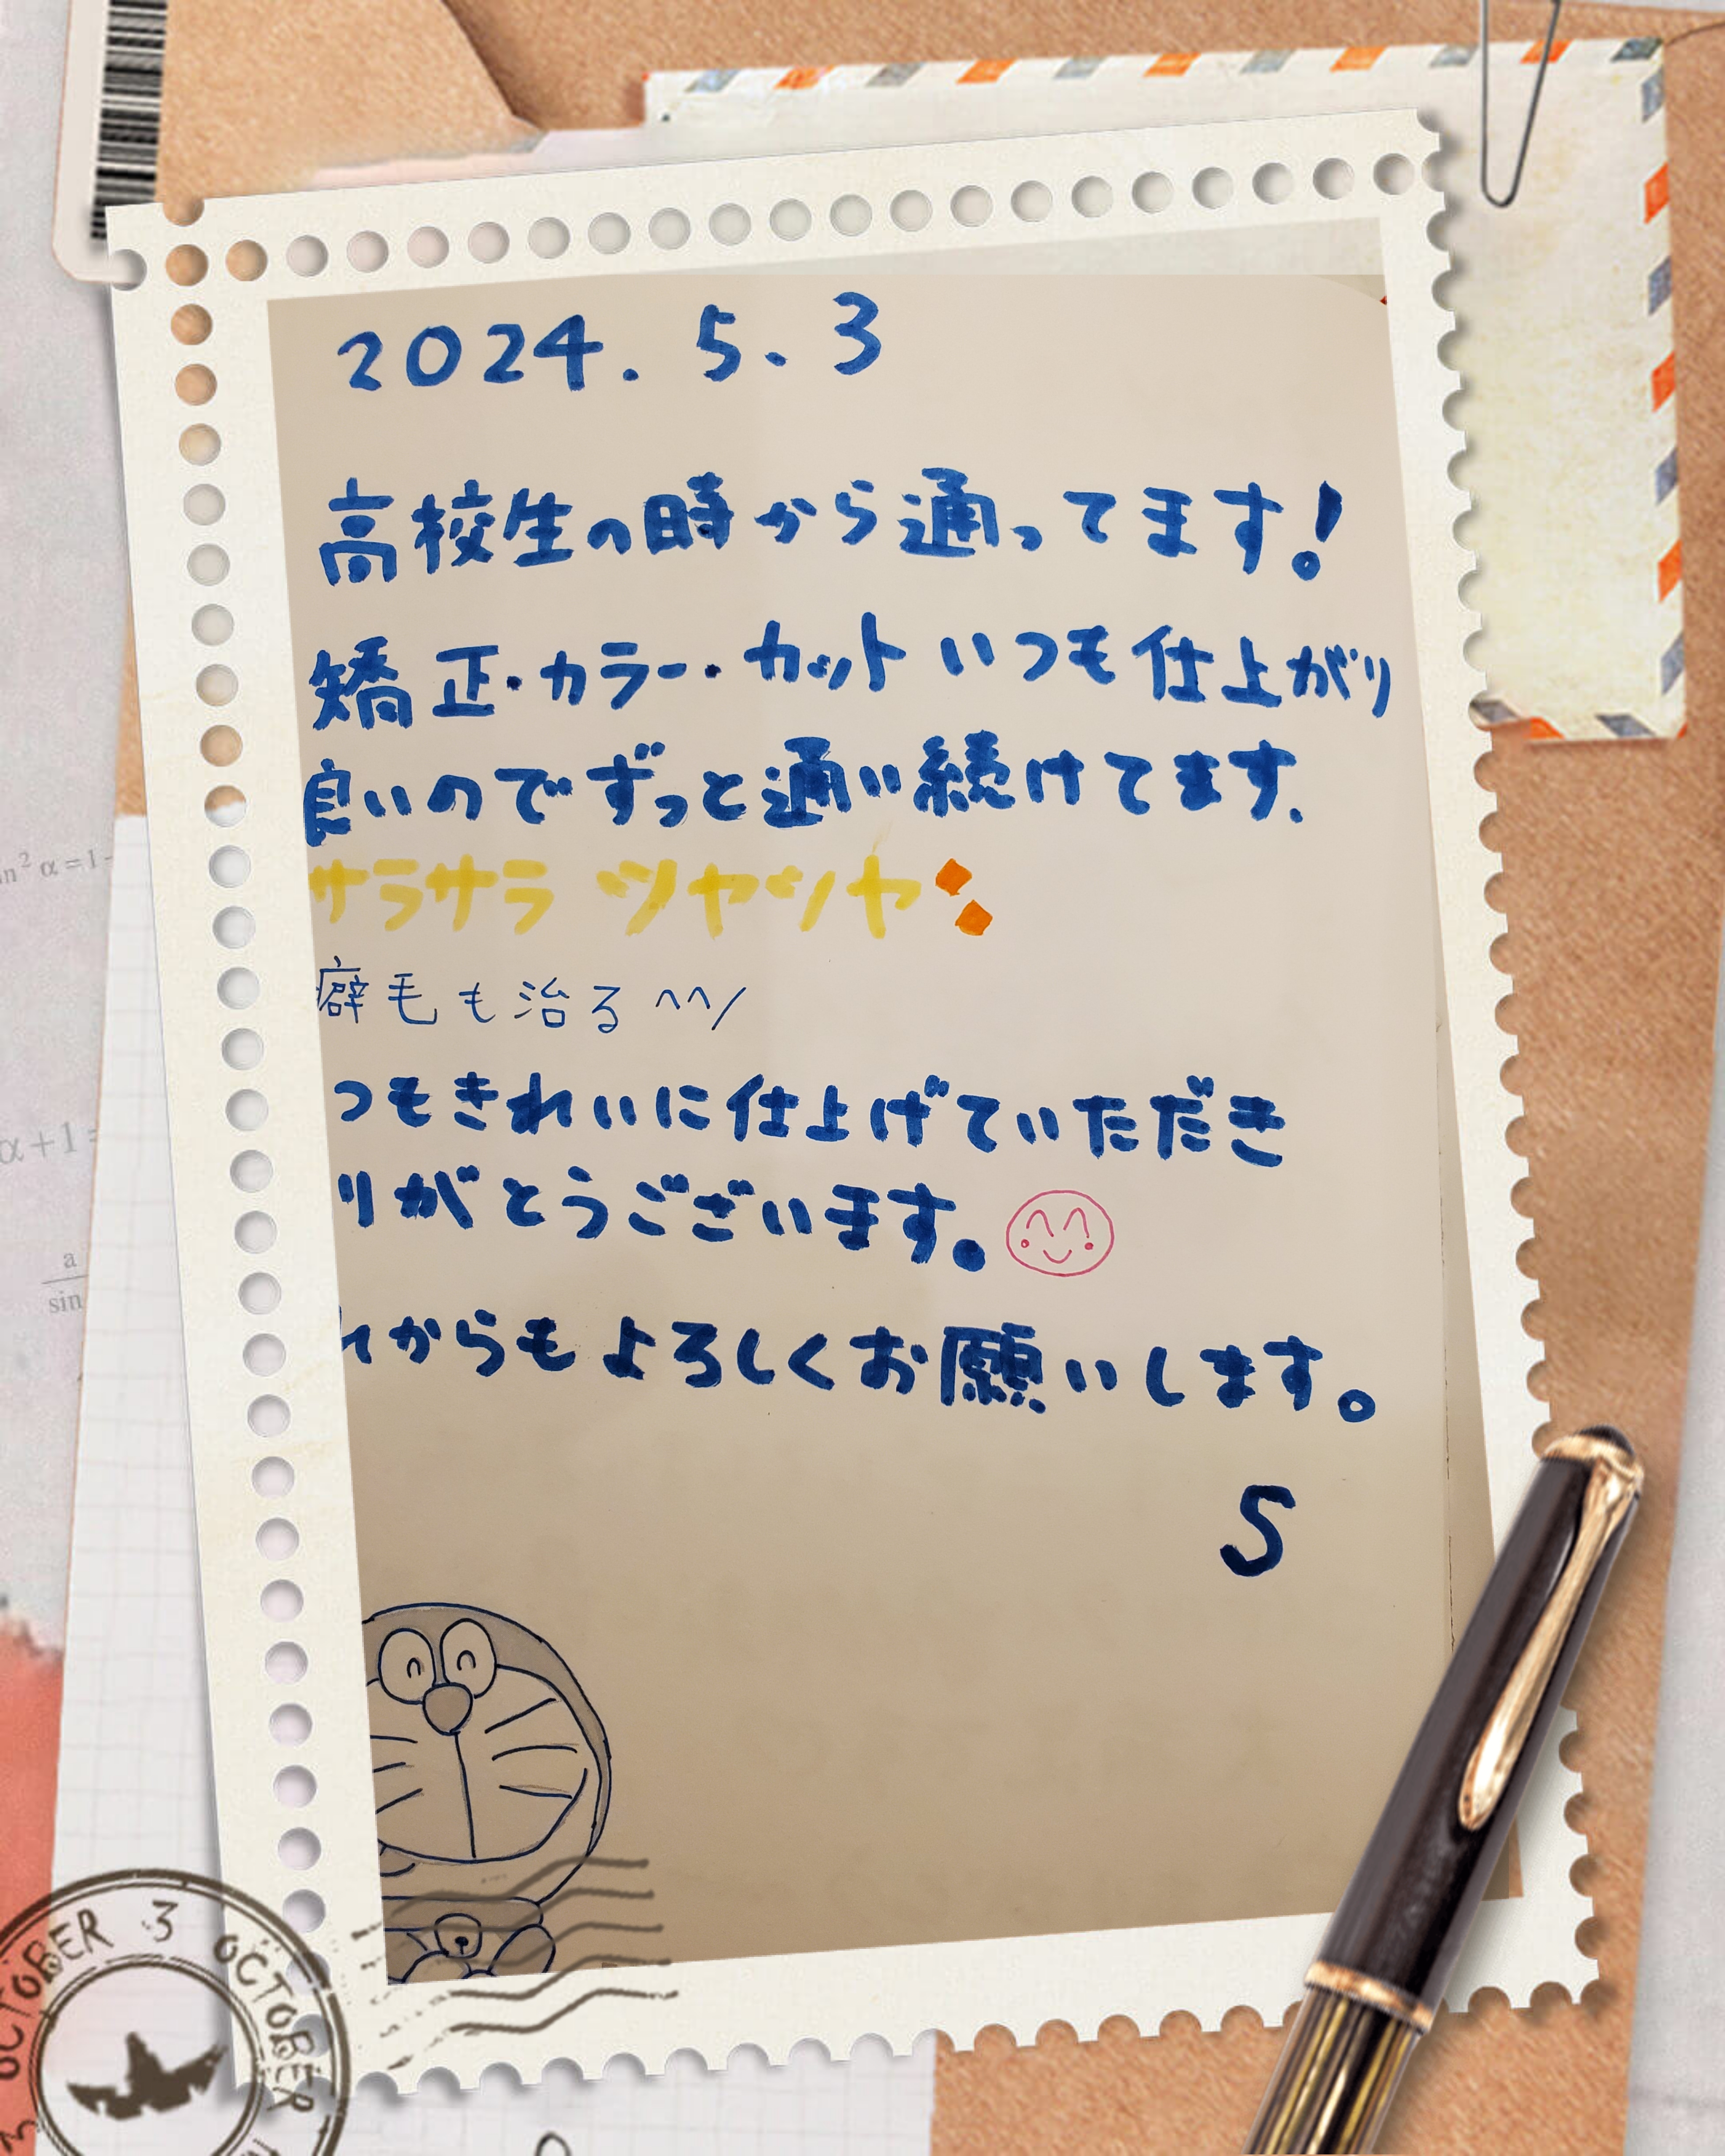 2024. 5. 3
高校生の時から通ってます!
矯正・カラー・カットいつも仕上がり
良いのでずっと通い続けてます.
サラサラ ツヤツヤ
癖毛も治る^^/
つもきれいに仕上げていただき
りがとうございます。
れからもよろしくお願いします。
S
in² α = 1 -
α + 1 =
a
sin
OCTOBER 3 OCTOBER